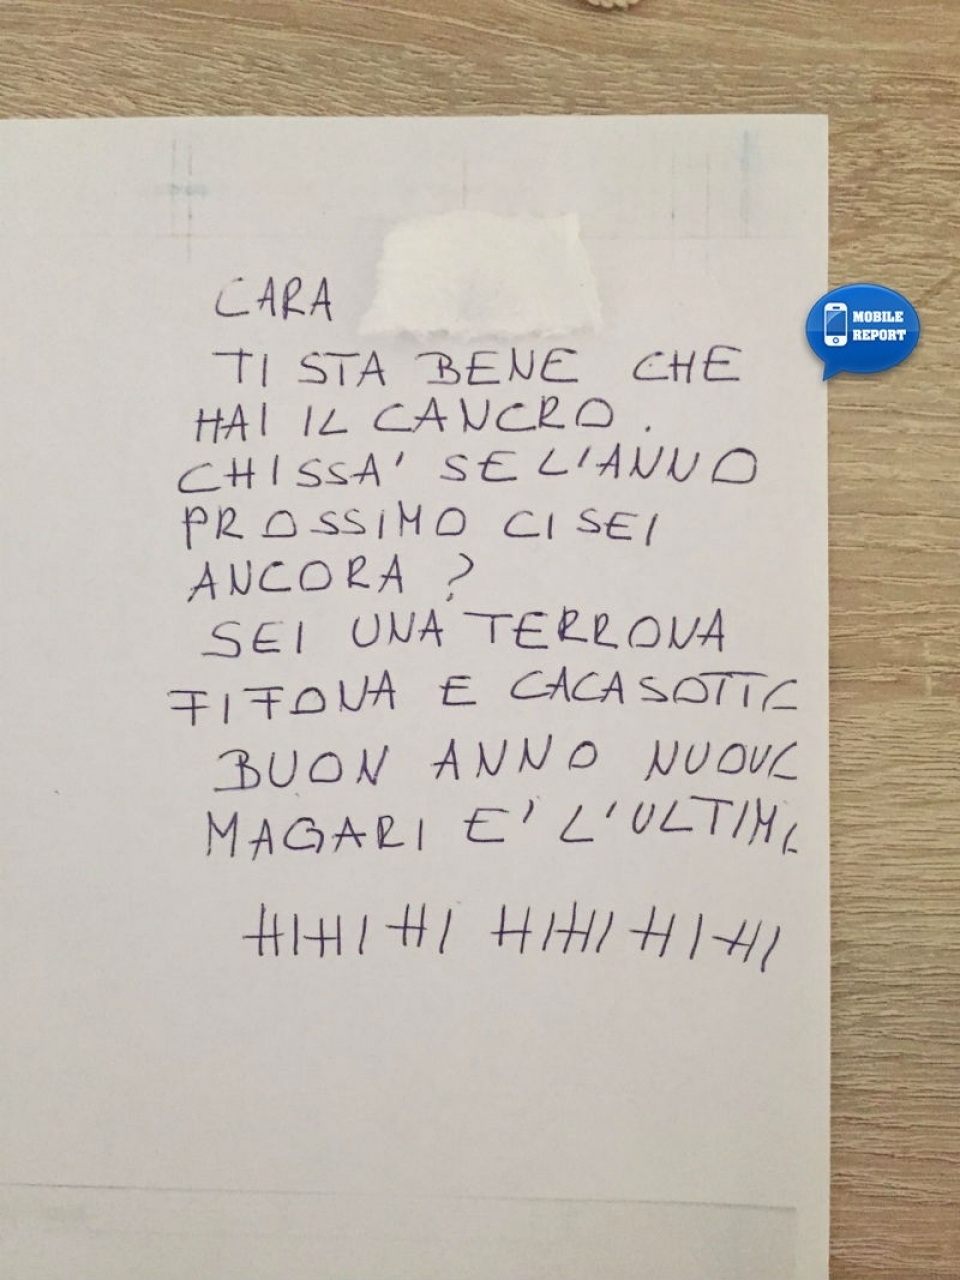 CARA
TI STA BENE CHE
HAI IL CANCRO.
CHISSA' SE L'ANNO
PROSSIMO CI SEI
ANCORA ?
SEI UNA TERRONA
FIFONA E CACASOTTO
BUON ANNO NUOVO
MAGARI E' L'ULTIMO
HIHI HI HIHI HI HI
MOBILE
REPORT